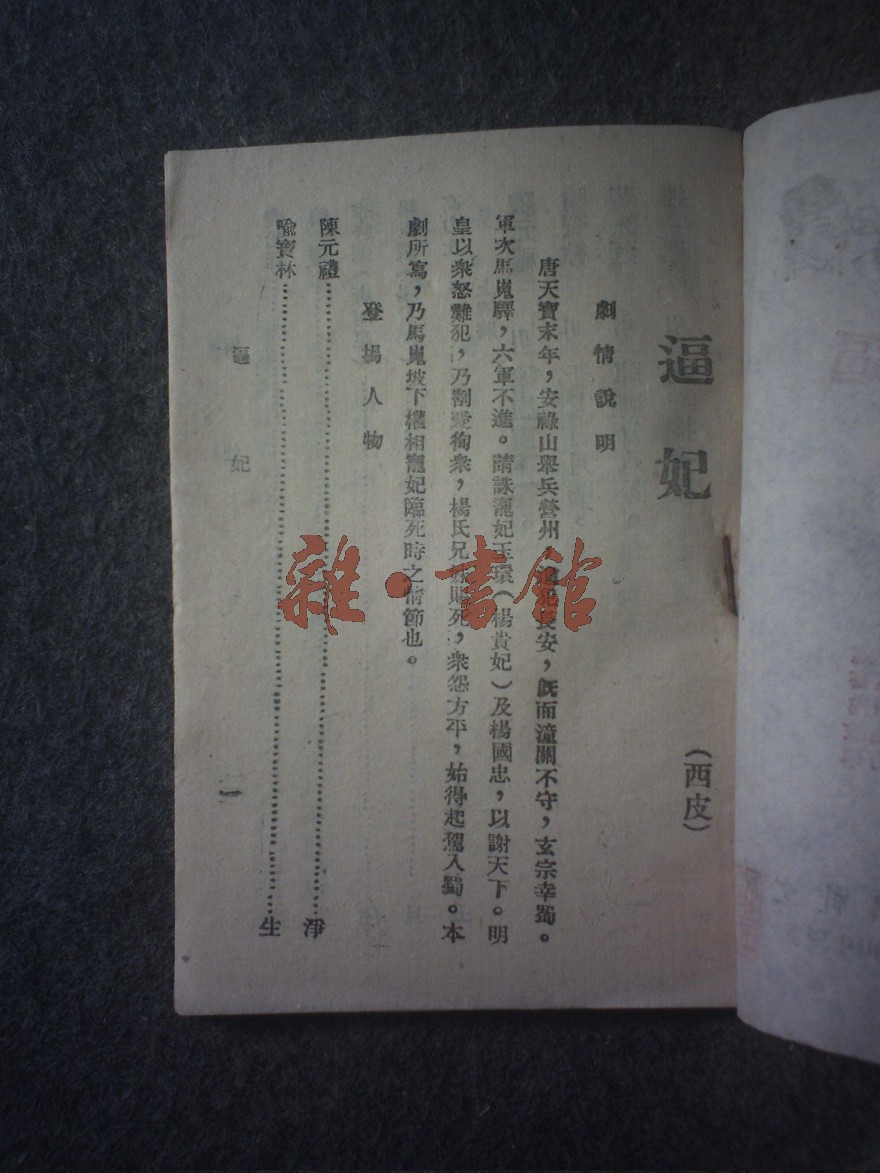 逼妃
（西皮）
劇情說明
唐天寶末年，安祿山舉兵營州，長安，既而潼關不守，玄宗幸蜀。
軍次馬嵬驛，六軍不進。請誅寵妃玉環（楊貴妃）及楊國忠，以謝天下。明
皇以衆怒難犯，乃割愛徇衆，楊氏兄妹賜死，衆怨方平，始得起駕入蜀。本
劇所寫，乃馬嵬坡下權相寵妃臨死時之情節也。
登場人物
陳元禮……淨
喻寶林……生
逼妃
一
雜·書館